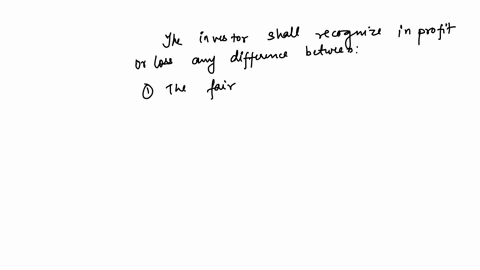 The investor shall recognize in profit
or loss any difference between:
① The fair